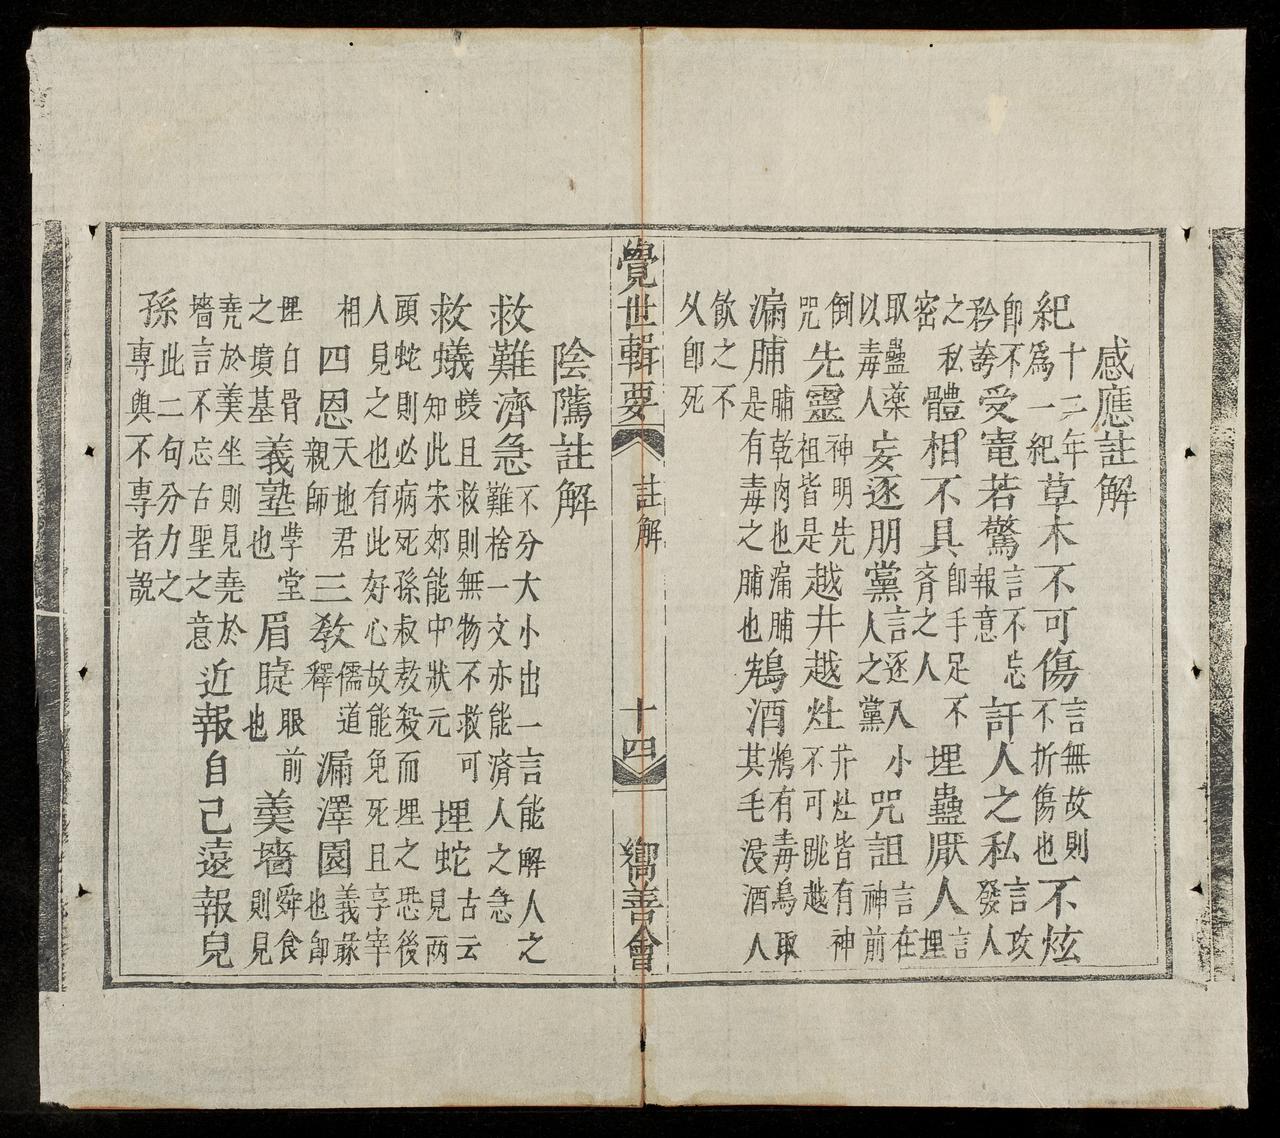 感應註解
紀十二年為一紀草木不可傷言無故則不折傷也不炫
卽不矜誇受寵若驚言不忘報意訐人之私言攻發人
之私密體相不具卽手足不齊之人埋蠱厭人言埋
取蠱藥以毒人妄逐朋黨言逐入小人之黨咒詛言在神前
倒咒先靈神明先祖皆是越井越灶井灶皆有神不可跳越
漏脯脯乾肉也漏脯是有毒之脯也鴆酒鴆有毒鳥取其毛浸酒人
飲之不久卽死
覺世輯要 註解 十四 嚮善會
陰隲註解
救難濟急不分大小出一言能解人之難捨一文亦能濟人之急
救蟻蟻且救則無物不救可知此宋郊能中狀元埋蛇古云見兩
頭蛇則必病死孫叔敖殺而埋之恐後人見之也有此好心故能免死且享宰
相四恩天地君親師三教儒道釋漏澤園義冢也卽
埋白骨之墳墓義塾學堂也眉睫眼前也羹墻舜食則見
堯於羹坐則見堯於墻言不忘古聖之意近報自己遠報兒
孫此二句分力之專與不專者説